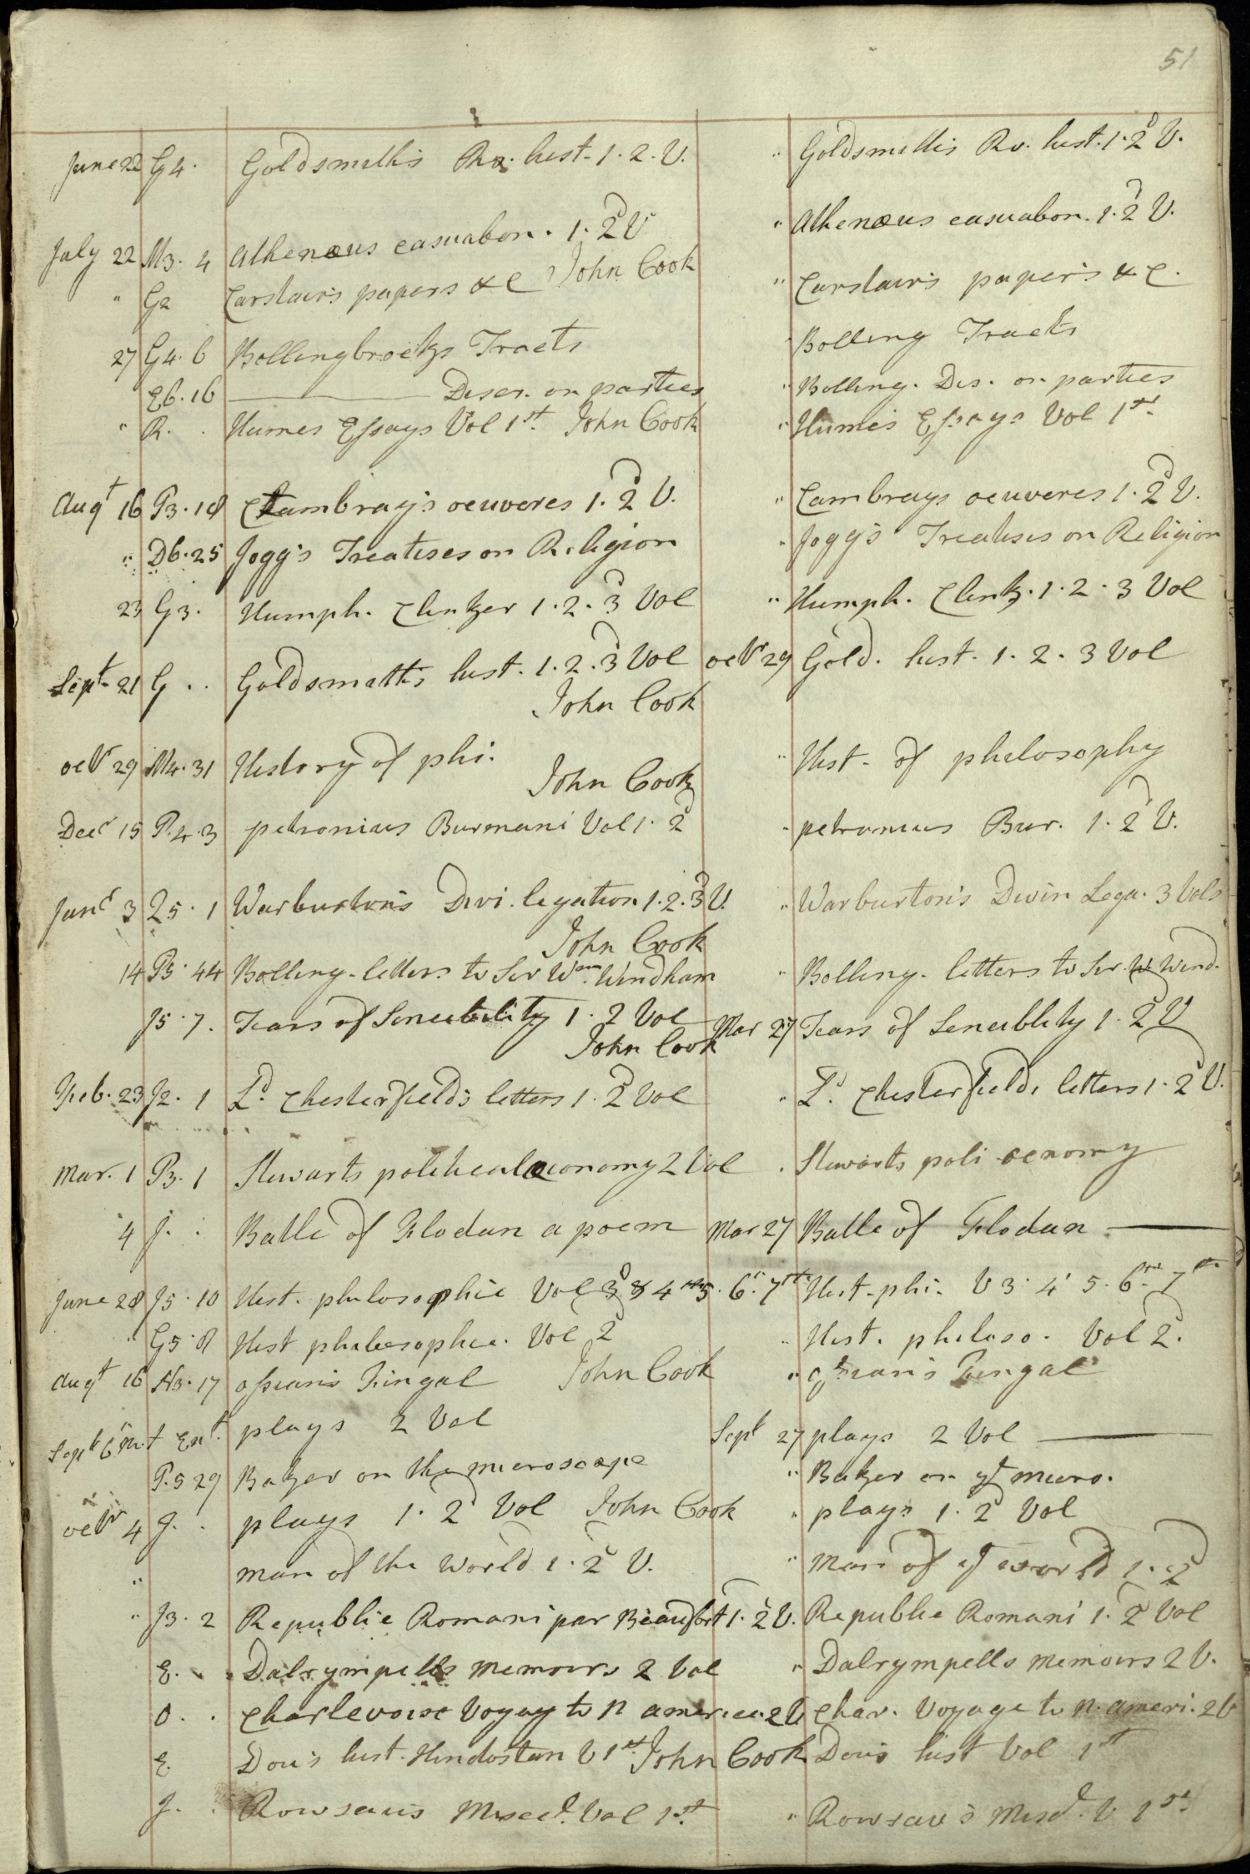 51
June 22 G4. Goldsmith's Ro. hist. 1. 2. V. " Goldsmith's Ro. hist. 1. 2d V.
July 22 M3. 4 Athenæus casuabon. 1. 2d V " Athenæus casuabon. 1. 2d V.
John Cook
" G2 Carstair's papers &c " Carstair's paper's &c.
27 G4. 6 Bollingbrocks Tracts " Bolling Tracts
E6. 16 ——— Disser. on parties " Bolling. Dis. on parties
" R. . Humes Essays Vol 1st. John Cook " Humes Essays Vol 1st.
Augt 16 P3. 18 Cambray's oeuveres 1. 2d V. " Cambrays oeuveres 1. 2d V.
" D6. 25 Jogg's Treatises on Religion " Jogg's Treatises on Religion
23 G3. Humph. Clinker 1. 2. 3d Vol " Humph. Clink. 1. 2. 3 Vol
Sept. 21 G . . Goldsmith's hist. 1. 2. 3d Vol octr 29 Gold. hist. 1. 2. 3 Vol
John Cook
octr 29 M4. 31 History of phi. " Hist. of philosophy
John Cook
Decr 15 P. 4. 3 petronius Burmani Vol 1. 2d " petronius Bur. 1. 2d V.
Janr 3 Q5. 1 Warburton's Divi. legation 1. 2. 3d V. " Warburton's Divin Lega. 3 Vols
John Cook
14 P5. 44 Bolling. letters to Sir Wm. Windham " Bolling. letters to Sir W Wind.
J5. 7. Tears of Sencibility 1. 2 Vol Mar 27 Tears of Sencibility 1. 2d V
John Cook
Feb. 23 J2. 1 Ld. Chesterfield's letters 1. 2d Vol " Ld. Chesterfields letters 1. 2d V.
Mar. 1 P3. 1 Stewarts political œconomy 2 Vol . Stewarts poli œcnomy
4 J. . Batle of Flodan a poem Mar 27 Batle of Flodan ———
June 28 J5. 10 Hist. philosophie Vol 3d & 4th 5. 6. 7th. Hist. phi. V 3. 4 5. 6. 7th
" G5. 8 Hist philosophie. Vol 2d " Hist. philoso. Vol 2d.
John Cook
augt 16 H3. 17 ossian's Fingal " ossian's Fingal
Sept 6 plays 2 Vol Sept 27 plays 2 Vol ———
P. 5 29 Baker on the microscope " Baker on yt micro.
octr 4 J. . plays 1. 2d Vol John Cook " plays 1. 2d Vol
" man of the world 1. 2d V. " Man of yt world 1. 2d
" J3. 2 Republic Romani par Beaufort 1. 2d V. Republic Romani 1. 2d Vol
E. . Dalrympells Memoirs 2 Vol " Dalrympells Memoirs 2 V.
O. . Charlevoise Voyag to N america. 2 V Char. Voyage to N. Ameri. 2 V
E. Dow's hist. Hindostan V 1st. John Cook Dow's hist Vol 1st
J. . Rowseau's Miscel. Vol 1st. " Rowseau's Misel. V 1st